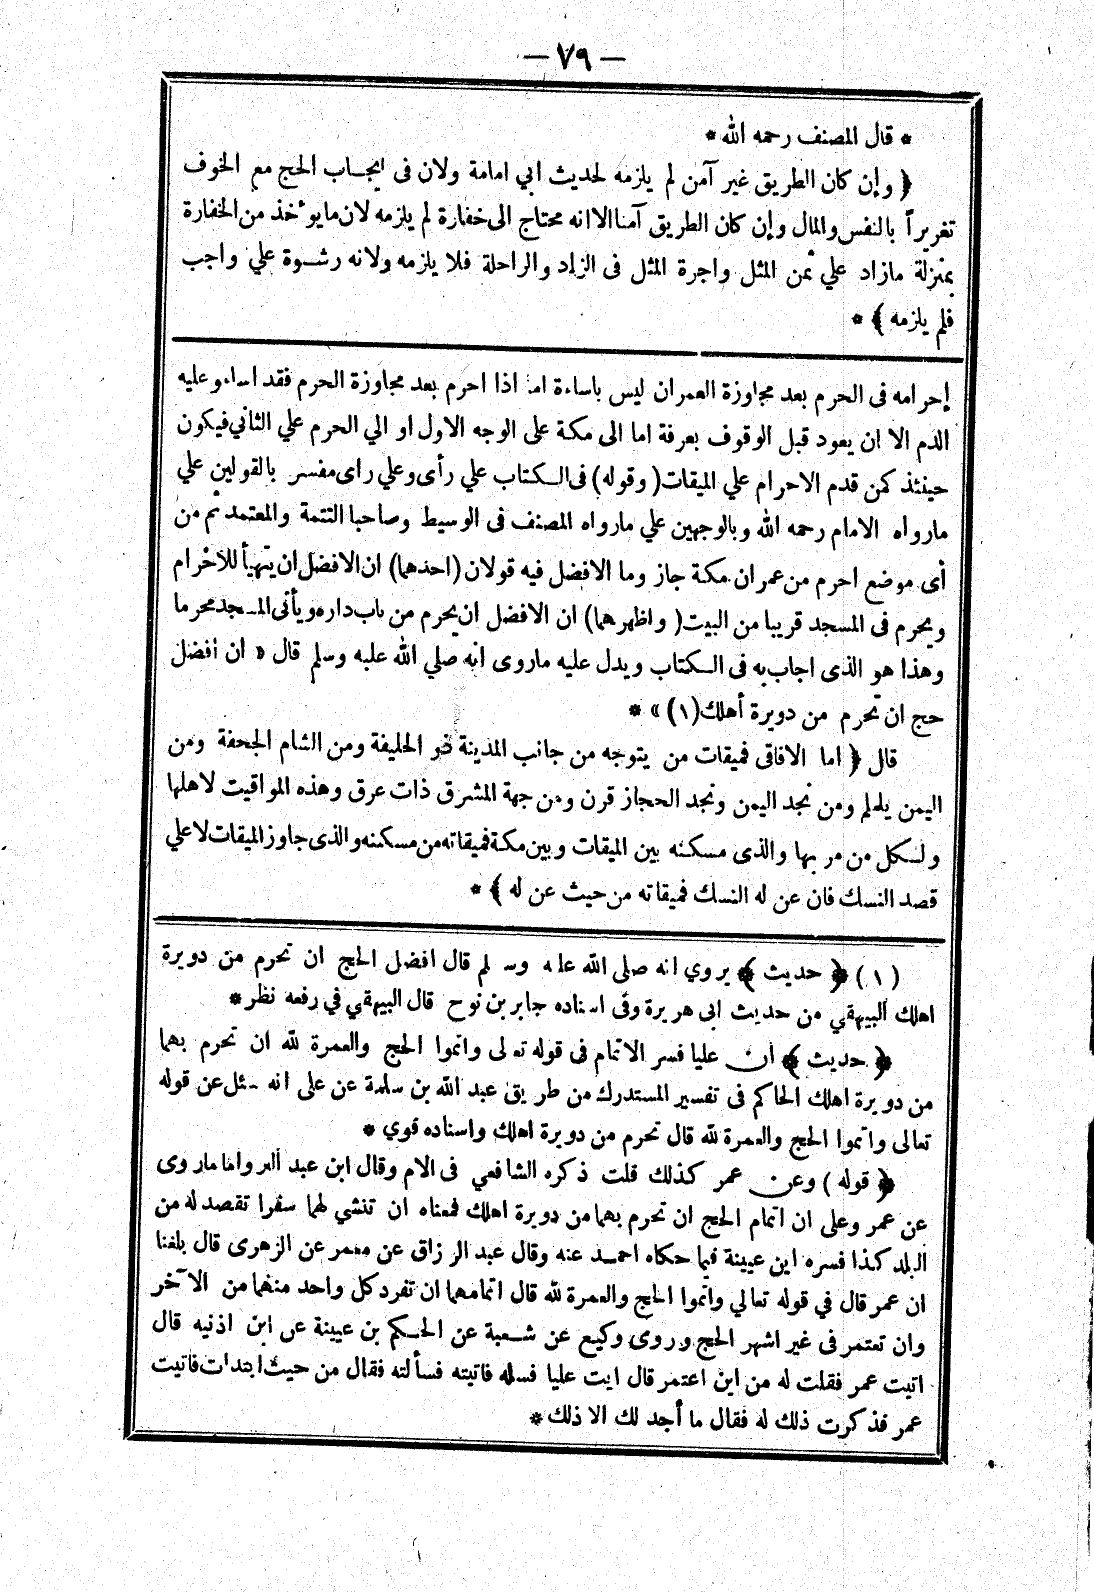 — ٧٩ —
* قال المصنف رحمه الله *
﴿ وإن كان الطريق غير آمن لم يلزمه لحديث ابي امامة ولان فى ايجاب الحج مع الخوف
تغريراً بالنفس والمال وإن كان الطريق آمنا الا انه محتاج الى خفارة لم يلزمه لان ما يوٴخذ من الخفارة
بمنزلة مازاد علي ثمن المثل واجرة المثل فى الزاد والراحلة فلا يلزمه ولانه رشوة علي واجب
فلم يلزمه ﴾ *
إحرامه فى الحرم بعد مجاوزة العمران ليس باساءة اما اذا احرم بعد مجاوزة الحرم فقد اساء وعليه
الدم الا ان يعود قبل الوقوف بعرفة اما الى مكة على الوجه الاول او الي الحرم علي الثاني فيكون
حينئذ كمن قدم الاحرام علي الميقات ( وقوله ) فى الكتاب علي رأى وعلي راى مفسر بالقولين علي
مارواه الامام رحمه الله وبالوجهين علي مارواه المصنف فى الوسيط وصاحبا التتمة والمعتمد ثم من
أى موضع احرم من عمران مكة جاز وما الافضل فيه قولان (احدهما) ان الافضل ان يتهيأ للاحرام
ويحرم فى المسجد قريبا من البيت ( واظهرهما ) ان الافضل ان يحرم من باب داره ويأتى المسجد محرما
وهذا هو الذى اجاب به فى الكتاب ويدل عليه ماروى انه صلي الله عليه وسلم قال « ان افضل
حج ان تحرم من دويرة أهلك (١) » *
قال ﴿ اما الافاقى فميقات من يتوجه من جانب المدينة ذو الحليفة ومن الشام الجحفة ومن
اليمن يلملم ومن نجد اليمن ونجد الحجاز قرن ومن جهة المشرق ذات عرق وهذه المواقيت لاهلها
ولكل من مر بها والذى مسكنه بين الميقات وبين مكة فميقاته من مسكنه والذى جاوز الميقات لا علي
قصد النسك فان عن له النسك فميقاته من حيث عن له ﴾ *
( ١ ) ﴿ حديث ﴾ يروي انه صلى الله عليه وسلم قال افضل الحج ان تحرم من دويرة
اهلك البيهقي من حديث ابى هريرة وفى اسناده جابر بن نوح قال البيهقي في رفعه نظر *
﴿ حديث ﴾ ان عليا فسر الاتمام فى قوله تعالى واتموا الحج والعمرة لله ان تحرم بهما
من دويرة اهلك الحاكم فى تفسير المستدرك من طريق عبد الله بن سلمة عن على انه سئل عن قوله
تعالى واتموا الحج والعمرة لله قال تحرم من دويرة اهلك واسناده قوي *
﴿ قوله ) وعن عمر كذلك قلت ذكره الشافعي فى الام وقال ابن عبد البر واما ماروى
عن عمر وعلى ان اتمام الحج ان تحرم بهما من دويرة اهلك فمعناه ان تنشي لهما سفرا تقصد له من
البلد كذا فسره ابن عيينة فيما حكاه احمد عنه وقال عبد الرزاق عن معمر عن الزهرى قال بلغنا
ان عمر قال في قوله تعالي واتموا الحج والعمرة لله قال اتمامهما ان تفرد كل واحد منهما من الآخر
وان تعتمر فى غير اشهر الحج وروى وكيع عن شعبة عن الحكم بن عيينة عن ابن اذنيه قال
اتيت عمر فقلت له من اين اعتمر قال ايت عليا فسله فاتيته فسألته فقال من حيث ابتدات فاتيت
عمر فذكرت ذلك له فقال ما أجد لك الا ذلك *